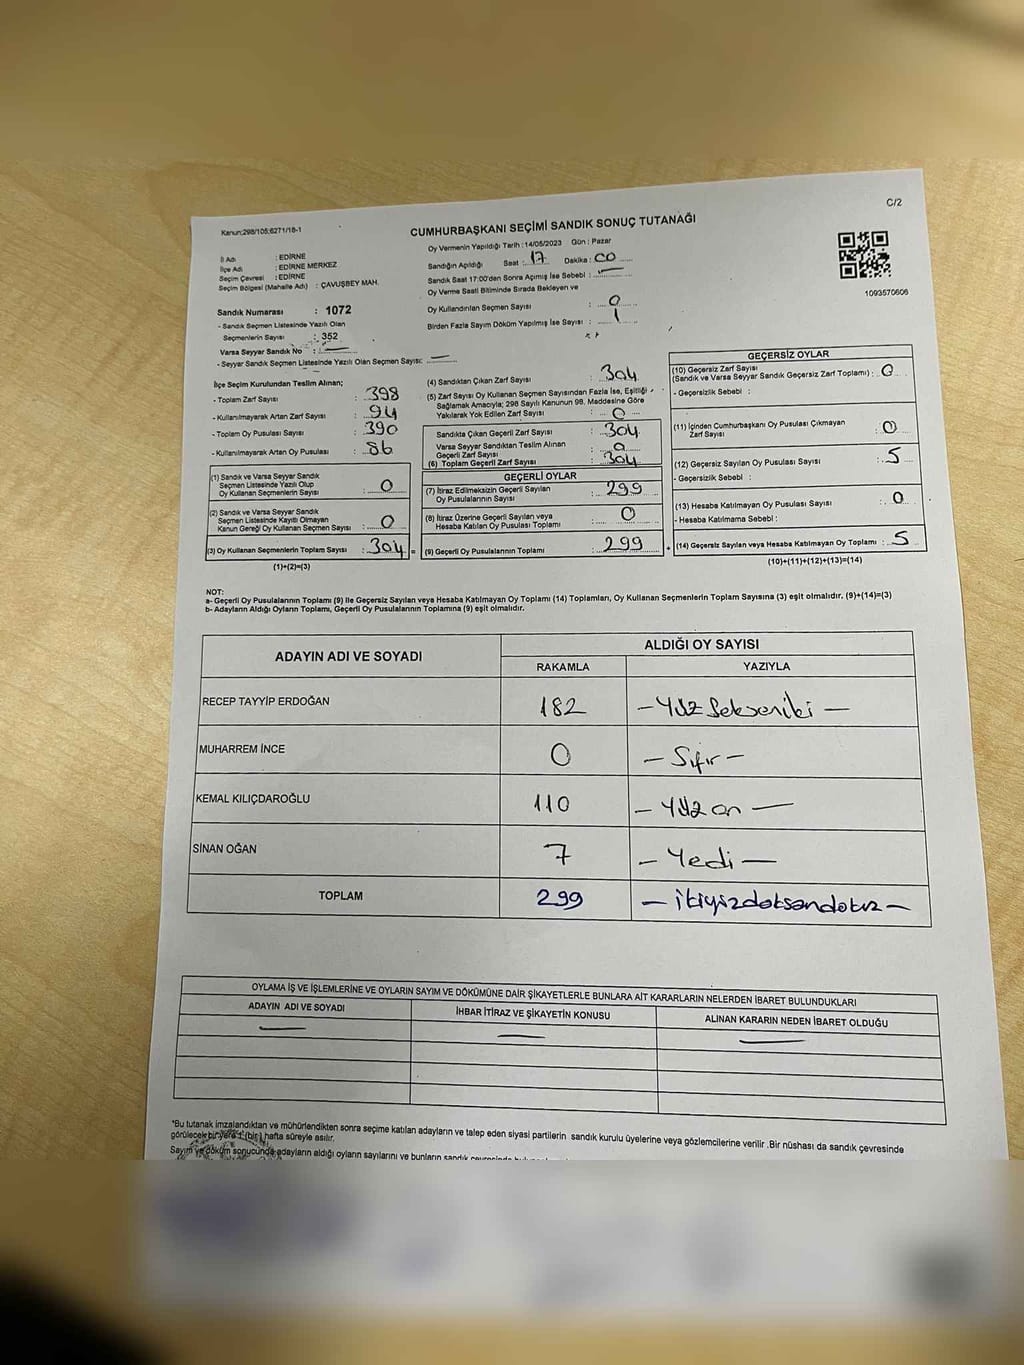 C/2
Kanun;298/105;6271/18-1
CUMHURBAŞKANI SEÇİMİ SANDIK SONUÇ TUTANAĞI
İl Adı : EDİRNE
İlçe Adı : EDİRNE MERKEZ
Seçim Çevresi : EDİRNE
Seçim Bölgesi (Mahalle Adı) : ÇAVUŞBEY MAH.
Oy Vermenin Yapıldığı Tarih :14/05/2023 Gün : Pazar
Sandığın Açıldığı Saat : 17 Dakika : 00
Sandık Saat 17:00'den Sonra Açımış İse Sebebi : —
Oy Verme Saati Bitiminde Sırada Bekleyen ve
Oy Kullandırılan Seçmen Sayısı : 0
Birden Fazla Sayım Döküm Yapılmış İse Sayısı : 1
1093570606
Sandık Numarası : 1072
- Sandık Seçmen Listesinde Yazılı Olan
Seçmenlerin Sayısı : 352
Varsa Seyyar Sandık No : —
- Seyyar Sandık Seçmen Listesinde Yazılı Olan Seçmen Sayısı: —
İlçe Seçim Kurulundan Teslim Alınan;
- Toplam Zarf Sayısı : 398
- Kullanılmayarak Artan Zarf Sayısı : 94
- Toplam Oy Pusulası Sayısı : 390
- Kullanılmayarak Artan Oy Pusulası : 86
(1) Sandık ve Varsa Seyyar Sandık
Seçmen Listesinde Yazılı Olup
Oy Kullanan Seçmenlerin Sayısı : 0
(2) Sandık ve Varsa Seyyar Sandık
Seçmen Listesinde Kayıtlı Olmayan
Kanun Gereği Oy Kullanan Seçmen Sayısı : 0
(3) Oy Kullanan Seçmenlerin Toplam Sayısı : 304 =
(1)+(2)=(3)
(4) Sandıktan Çıkan Zarf Sayısı : 304
(5) Zarf Sayısı Oy Kullanan Seçmen Sayısından Fazla İse, Eşitliği
Sağlamak Amacıyla; 298 Sayılı Kanunun 98. Maddesine Göre
Yakılarak Yok Edilen Zarf Sayısı : 0
Sandıkta Çıkan Geçerli Zarf Sayısı : 304
Varsa Seyyar Sandıktan Teslim Alınan
Geçerli Zarf Sayısı : 0
(6) Toplam Geçerli Zarf Sayısı : 304
GEÇERLİ OYLAR
(7) İtiraz Edilmeksizin Geçerli Sayılan
Oy Pusulalarının Sayısı : 299
(8) İtiraz Üzerine Geçerli Sayılan veya
Hesaba Katılan Oy Pusulası Toplamı : 0
(9) Geçerli Oy Pusulalarının Toplamı : 299 +
GEÇERSİZ OYLAR
(10) Geçersiz Zarf Sayısı
(Sandık ve Varsa Seyyar Sandık Geçersiz Zarf Toplamı) : 0
- Geçersizlik Sebebi :
(11) İçinden Cumhurbaşkanı Oy Pusulası Çıkmayan
Zarf Sayısı : 0
(12) Geçersiz Sayılan Oy Pusulası Sayısı : 5
- Geçersizlik Sebebi :
(13) Hesaba Katılmayan Oy Pusulası Sayısı : 0
- Hesaba Katılmama Sebebi :
(14) Geçersiz Sayılan veya Hesaba Katılmayan Oy Toplamı : 5
(10)+(11)+(12)+(13)=(14)
NOT:
a- Geçerli Oy Pusulalarının Toplamı (9) ile Geçersiz Sayılan veya Hesaba Katılmayan Oy Toplamı (14) Toplamları, Oy Kullanan Seçmenlerin Toplam Sayısına (3) eşit olmalıdır. (9)+(14)=(3)
b- Adayların Aldığı Oyların Toplamı, Geçerli Oy Pusulalarının Toplamına (9) eşit olmalıdır.
ADAYIN ADI VE SOYADI ALDIĞI OY SAYISI
RAKAMLA YAZIYLA
RECEP TAYYİP ERDOĞAN 182 — Yüz Seksen iki —
MUHARREM İNCE 0 — Sıfır —
KEMAL KILIÇDAROĞLU 110 — Yüz on —
SİNAN OĞAN 7 — Yedi —
TOPLAM 299 — ikiyüzdoksandokuz —
OYLAMA İŞ VE İŞLEMLERİNE VE OYLARIN SAYIM VE DÖKÜMÜNE DAİR ŞİKAYETLERLE BUNLARA AİT KARARLARIN NELERDEN İBARET BULUNDUKLARI
ADAYIN ADI VE SOYADI İHBAR İTİRAZ VE ŞİKAYETİN KONUSU ALINAN KARARIN NEDEN İBARET OLDUĞU
— — —
*Bu tutanak imzalandıktan ve mühürlendikten sonra seçime katılan adayların ve talep eden siyasi partilerin sandık kurulu üyelerine veya gözlemcilerine verilir .Bir nüshası da sandık çevresinde
görülecek bir yere 1 (bir) hafta süreyle asılır.
Sayım ve döküm sonucunda adayların aldığı oyların sayılarını ve bunların sandık